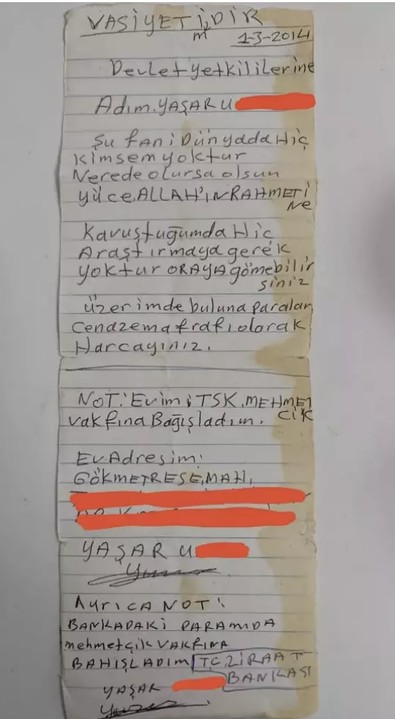 VASİYETİMDİR
1-3-2014
Devlet yetkililerine
Adım. YAŞAR U
Şu fani Dünyada Hiç
Kimsem yoktur
Nerede olursa olsun
yüce. ALLAH'IN RAHMETİNE
Kavuştuğumda Hiç
Araştırmaya gerek
yoktur ORAYA gömebilirsiniz
üzerimde buluna paralar
Cenaze mafrafı olarak
Harcayınız.
NOT: Evimi TSK. MEHMETCİK
vakfına Bağışladım.
Ev Adresim:
GÖKMETRESE, MAH,
YAŞAR U
Ayrıca NOT:
BANKADAKİ PARAMIDA
mehmetçik VAKFINA
BAHIŞLADIM TC ZİRAAT
BANKASI
YAŞAR